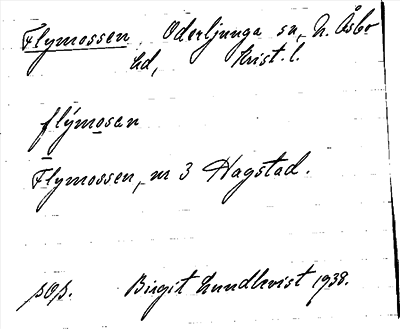 Flymossen. Oderljunga sn, N. Åsbo
hd, Krist. l.
flýmosan
Flymossen, nr 3 Hagstad.
pop. Birgit Lundkvist 1938.